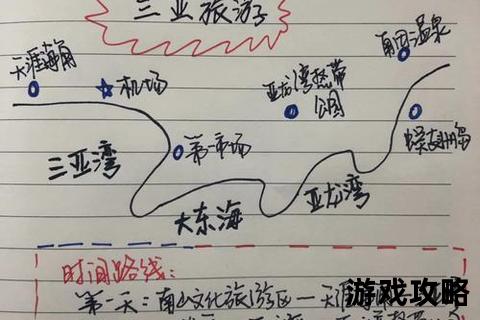 三亚旅游
南田温泉
天涯海角
机场
亚龙湾热带
公园
蜈支洲岛
三亚湾
第一市场
大东海
亚龙湾
时间路线:
第一天:南山文化旅游区一天涯
游戏攻略